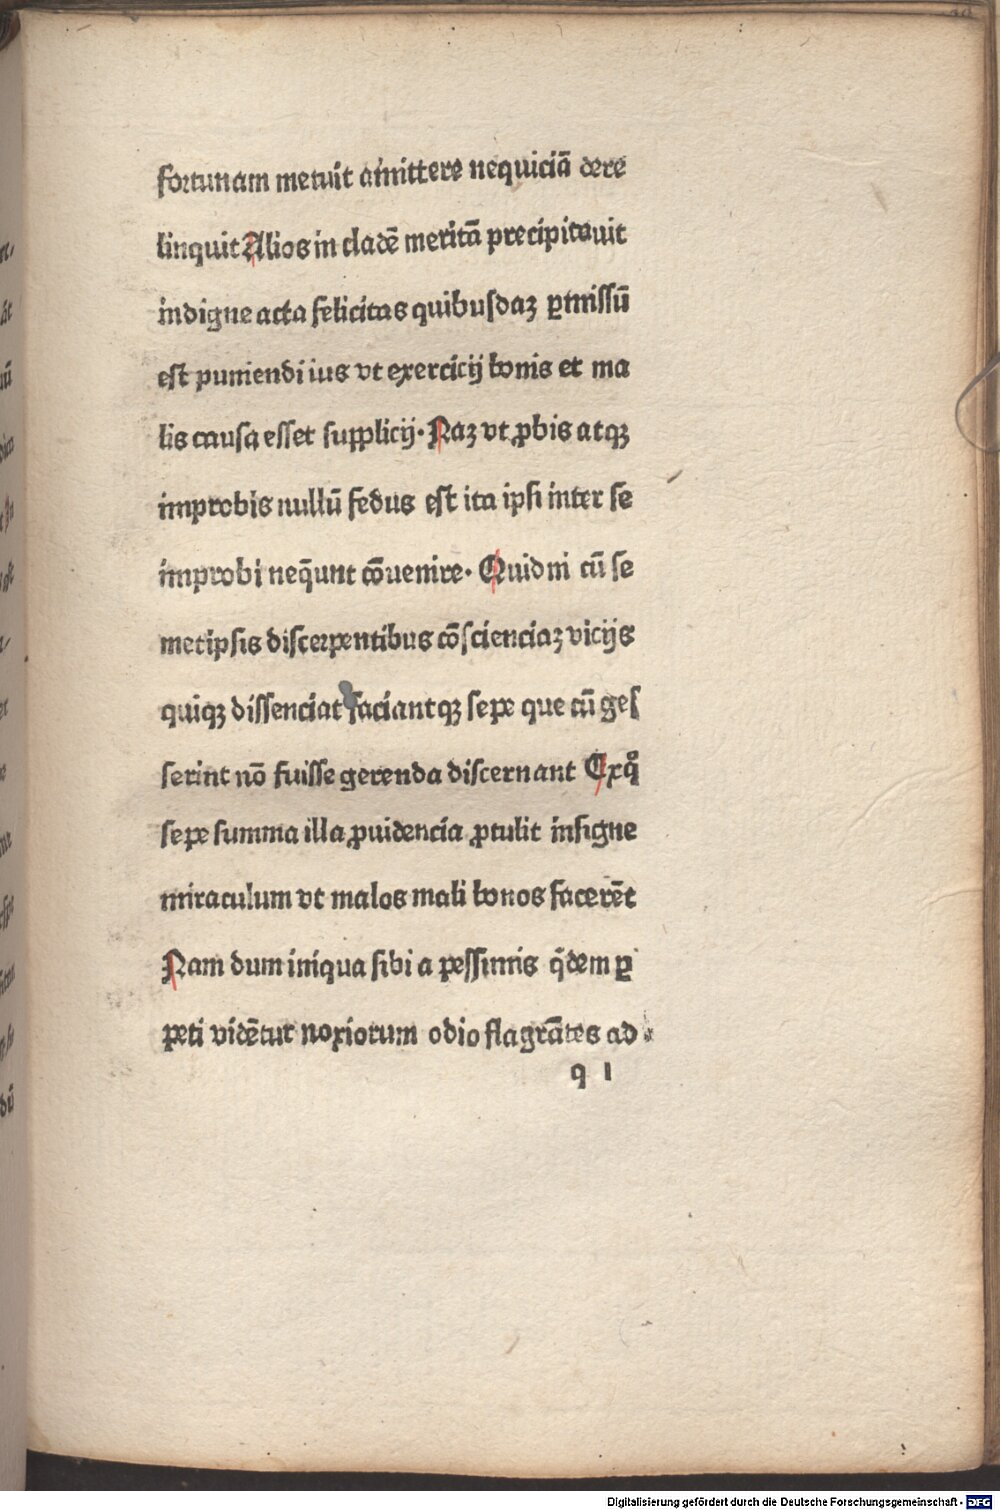 fortunam metuit amittere nequiciā dere
linquit Alios in cladē meritā precipitauit
indigne acta felicitas quibusdaꝫ ꝑmissū
est puniendi ius vt exercicij bonis et ma
lis causa esset supplicij. Naꝫ vt ꝓbis atqꝫ
improbis nullū fedus est ita ipsi inter se
improbi neq̄unt cōuenire. Quid ni cū se
metipsis discerpentibus cōscienciaꝫ vicijs
quiqꝫ dissenciat faciantqꝫ sepe que cū ges
serint nō fuisse gerenda discernant Exqͦ
sepe summa illa ꝓuidencia ꝓtulit insigne
miraculum vt malos mali bonos facerēt
Nam dum iniqua sibi a pessimis q̄dem ꝑ
peti vidētur noxiorum odio flagrātes ad
q 1
Digitalisierung gefördert durch die Deutsche Forschungsgemeinschaft - DFG